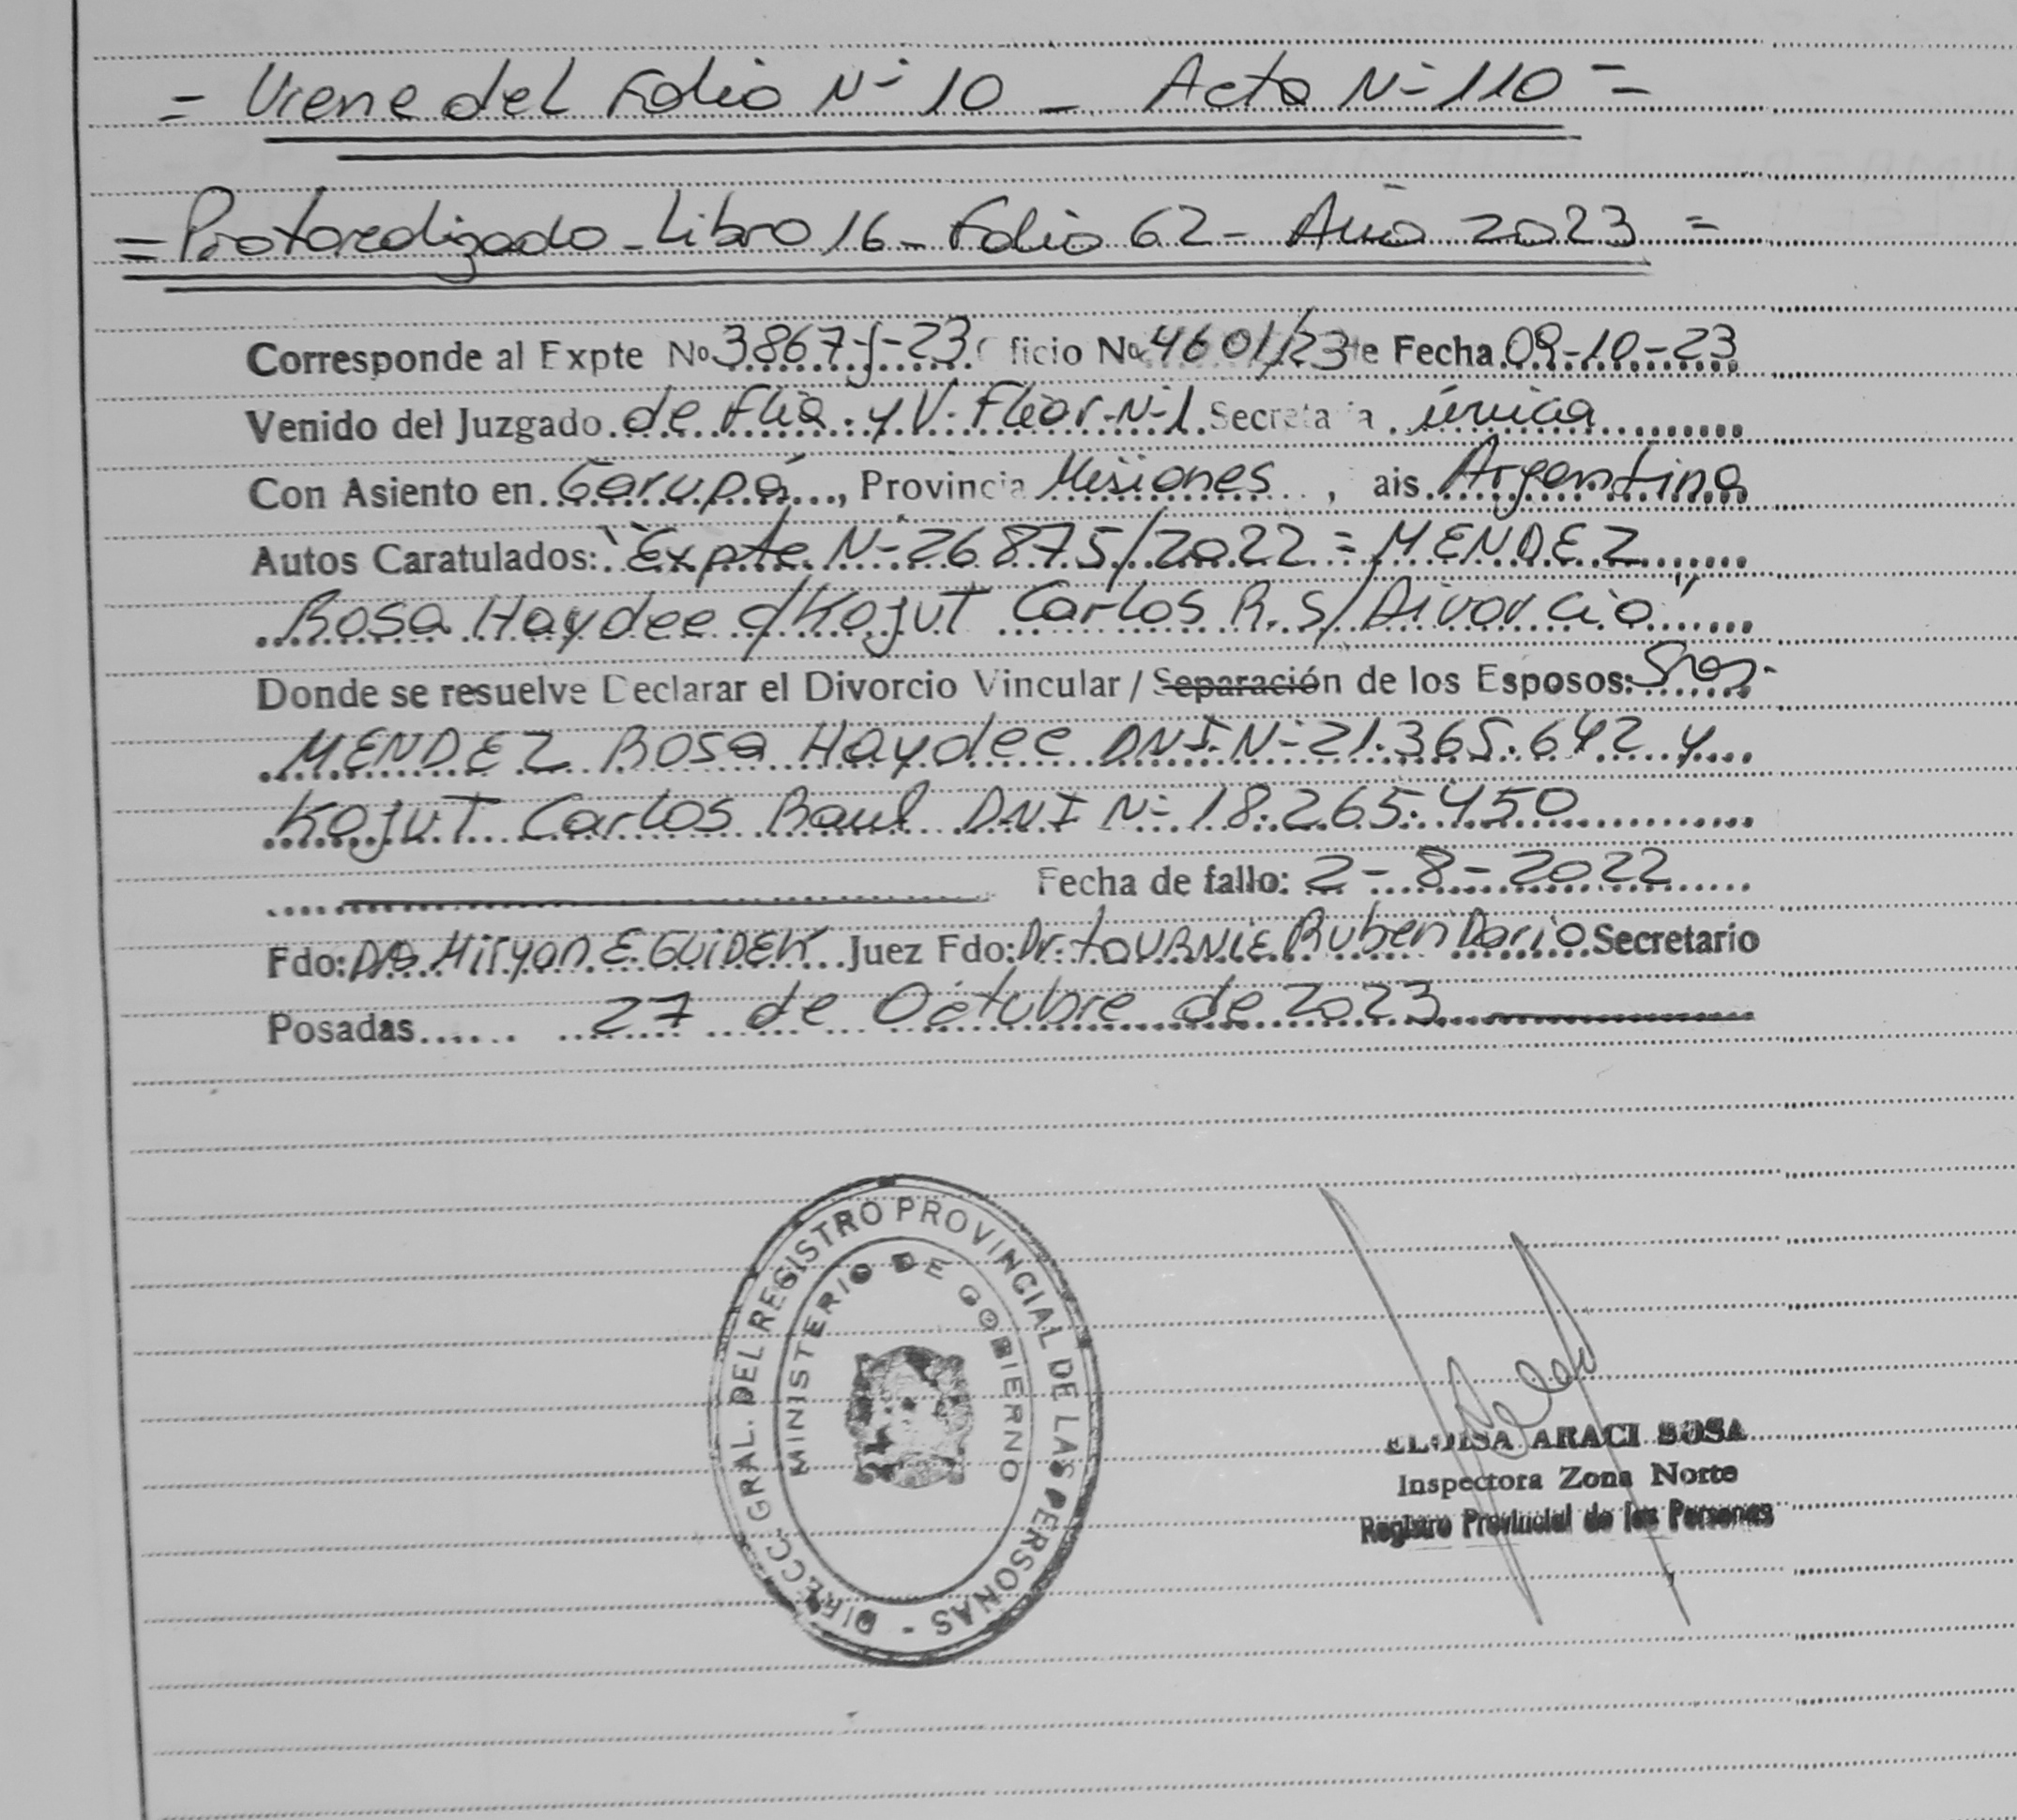 = Viene del Folio Nº 10 - Acta Nº 110 =
= Protocolizado - Libro 16 - Folio 62 - Año 2023 =
Corresponde al Expte Nº 3867-J-23 ficio Nº 4601/23 te Fecha 09-10-23
Venido del Juzgado de Flia. y V. Fliar Nº 1 Secretaria única
Con Asiento en Garupá, Provincia Misiones, ais Argentina
Autos Caratulados: "Expte. Nº 26875/2022 = MENDEZ
Rosa Haydee c/ Kojut Carlos R. S/ Divorcio"
Donde se resuelve Declarar el Divorcio Vincular / Separación de los Esposos: Sres.
MENDEZ Rosa Haydee DNI Nº 21.365.642 y
Kojut Carlos Raul DNI Nº 18.265.450
Fecha de fallo: 2-8-2022
Fdo: Dra Miryan E. GUIDEK Juez Fdo: Dr. TOURNIE Ruben Dario Secretario
Posadas 27 de Octubre de 2023
DIRECC. GRAL. DEL REGISTRO PROVINCIAL DE LAS PERSONAS -
MINISTERIO DE GOBIERNO
ELOISA ARACI SOSA
Inspectora Zona Norte
Registro Provincial de las Personas